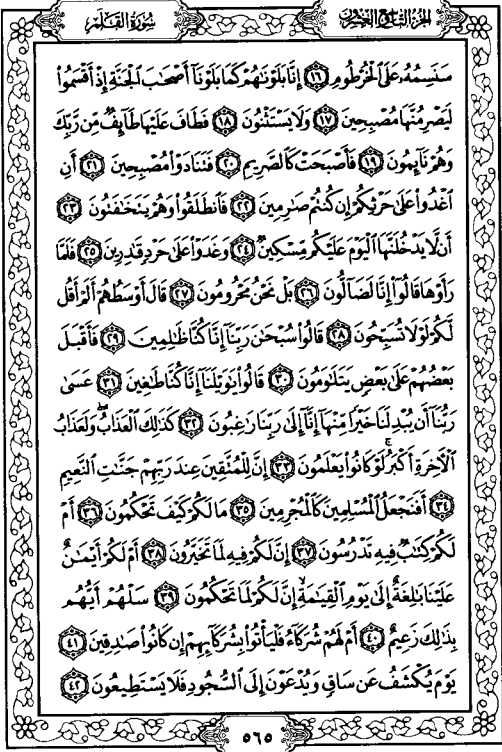 الجزء التاسع والعشرون
سورة القلم
سَنَسِمُهُۥ عَلَى ٱلْخُرْطُومِ ١٦ إِنَّا بَلَوْنَٰهُمْ كَمَا بَلَوْنَآ أَصْحَٰبَ ٱلْجَنَّةِ إِذْ أَقْسَمُوا۟
لَيَصْرِمُنَّهَا مُصْبِحِينَ ١٧ وَلَا يَسْتَثْنُونَ ١٨ فَطَافَ عَلَيْهَا طَآئِفٌ مِّن رَّبِّكَ
وَهُمْ نَآئِمُونَ ١٩ فَأَصْبَحَتْ كَٱلصَّرِيمِ ٢٠ فَتَنَادَوْا۟ مُصْبِحِينَ ٢١ أَنِ
ٱغْدُوا۟ عَلَىٰ حَرْثِكُمْ إِن كُنتُمْ صَٰرِمِينَ ٢٢ فَٱنطَلَقُوا۟ وَهُمْ يَتَخَٰفَتُونَ ٢٣
أَن لَّا يَدْخُلَنَّهَا ٱلْيَوْمَ عَلَيْكُم مِّسْكِينٌ ٢٤ وَغَدَوْا۟ عَلَىٰ حَرْدٍ قَٰدِرِينَ ٢٥ فَلَمَّا
رَأَوْهَا قَالُوٓا۟ إِنَّا لَضَآلُّونَ ٢٦ بَلْ نَحْنُ مَحْرُومُونَ ٢٧ قَالَ أَوْسَطُهُمْ أَلَمْ أَقُل
لَّكُمْ لَوْلَا تُسَبِّحُونَ ٢٨ قَالُوا۟ سُبْحَٰنَ رَبِّنَآ إِنَّا كُنَّا ظَٰلِمِينَ ٢٩ فَأَقْبَلَ
بَعْضُهُمْ عَلَىٰ بَعْضٍ يَتَلَٰوَمُونَ ٣٠ قَالُوا۟ يَٰوَيْلَنَآ إِنَّا كُنَّا طَٰغِينَ ٣١ عَسَىٰ
رَبُّنَآ أَن يُبْدِلَنَا خَيْرًا مِّنْهَآ إِنَّآ إِلَىٰ رَبِّنَا رَٰغِبُونَ ٣٢ كَذَٰلِكَ ٱلْعَذَابُ ۖ وَلَعَذَابُ
ٱلْـَٔاخِرَةِ أَكْبَرُ ۚ لَوْ كَانُوا۟ يَعْلَمُونَ ٣٣ إِنَّ لِلْمُتَّقِينَ عِندَ رَبِّهِمْ جَنَّٰتِ ٱلنَّعِيمِ
٣٤ أَفَنَجْعَلُ ٱلْمُسْلِمِينَ كَٱلْمُجْرِمِينَ ٣٥ مَا لَكُمْ كَيْفَ تَحْكُمُونَ ٣٦ أَمْ
لَكُمْ كِتَٰبٌ فِيهِ تَدْرُسُونَ ٣٧ إِنَّ لَكُمْ فِيهِ لَمَا تَخَيَّرُونَ ٣٨ أَمْ لَكُمْ أَيْمَٰنٌ
عَلَيْنَا بَٰلِغَةٌ إِلَىٰ يَوْمِ ٱلْقِيَٰمَةِ ۙ إِنَّ لَكُمْ لَمَا تَحْكُمُونَ ٣٩ سَلْهُمْ أَيُّهُم
بِذَٰلِكَ زَعِيمٌ ٤٠ أَمْ لَهُمْ شُرَكَآءُ فَلْيَأْتُوا۟ بِشُرَكَآئِهِمْ إِن كَانُوا۟ صَٰدِقِينَ ٤١
يَوْمَ يُكْشَفُ عَن سَاقٍ وَيُدْعَوْنَ إِلَى ٱلسُّجُودِ فَلَا يَسْتَطِيعُونَ ٤٢
٥٦٥